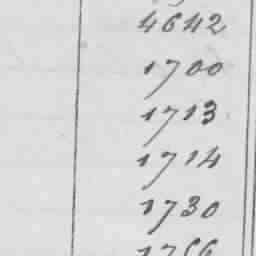 4642
1700
1713
1714
1730